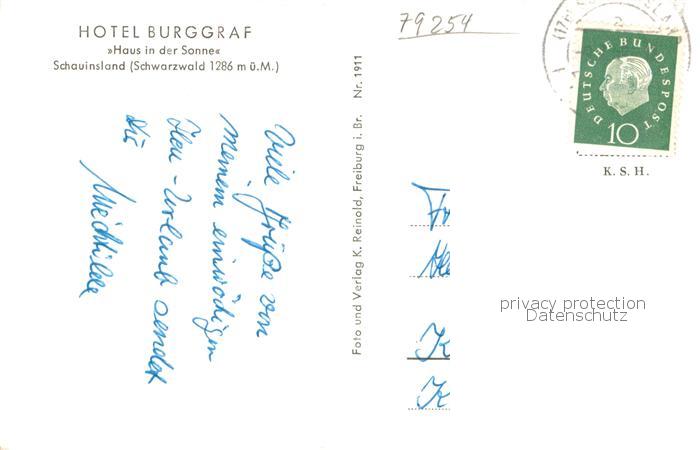 HOTEL BURGGRAF
»Haus in der Sonne«
Schauinsland (Schwarzwald 1286 m ü.M.)
79254
DEUTSCHE BUNDESPOST
10
K. S. H.
Viele Grüße von
meinem einwöchigen
Urlaub sendet
Dir
Mechtilde
Foto und Verlag K. Reinold, Freiburg i. Br. Nr. 1911
Fr
K
K
privacy protection
Datenschutz